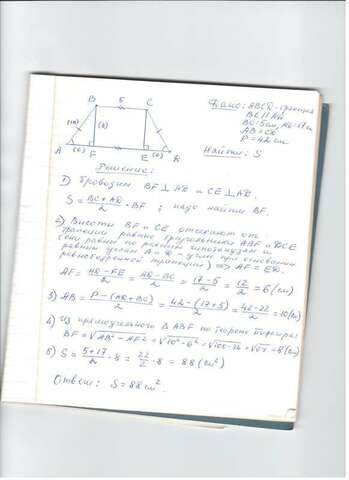 Дано: ABCD - трапеция
BC || AD
BC = 5 см, AD = 17 см
AB = CD
P = 42 см
Найти: S
B 5 C
(10) (8)
A (6) F E (6) D
Решение:
1) Проводим BF ⊥ AD и CE ⊥ AD.
S = (BC + AD)/2 · BF ; надо найти BF.
2) Высоты BF и CE отсекают от
трапеции равные треугольники ABF и DCE
(они равны по равным гипотенузам и
равным углам A и D - углы при основании
равнобедренной трапеции) => AF = ED.
AF = (AD - FE)/2 = (AD - BC)/2 = (17 - 5)/2 = 12/2 = 6 (см)
3) AB = (P - (AD + BC))/2 = (42 - (17 + 5))/2 = (42 - 22)/2 = 10 (см)
4) Из прямоугольного Δ ABF по теореме Пифагора:
BF = √AB² - AF² = √10² - 6² = √100 - 36 = √64 = 8 (см)
5) S = (5 + 17)/2 · 8 = 22/2 · 8 = 88 (см²)
Ответ: S = 88 см².